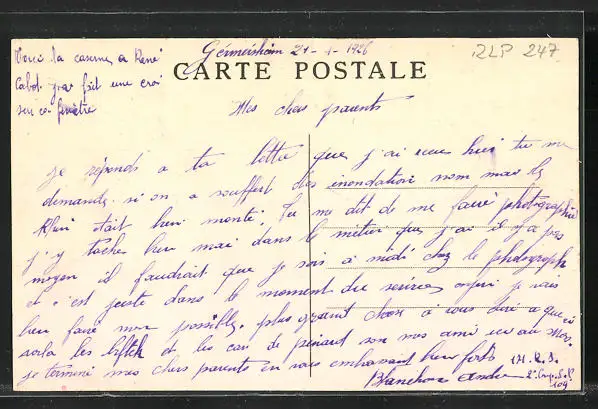 Germersheim 21-1-1926
RLP 247
Voici la caserne a René
Cabot. jai fait une croi
sur ca fenètre
CARTE POSTALE
Mes chers parents
Je réponds a ta lettre que j'ai recue hier tu me
demande si on a souffert des inondation nom mais le
Rhin était bien monté. Tu me dit de me faire photographié
j'y tache bien mai dans le métier que j'ai il y a pas
moyen il faudrait que je sois a midi chez le photograph
et c'est juste dans le moment du service enfin je vais
bien faire mon possible. plus grand chose à vous dire a que
voila les et les de son mes ami
je termine mes chers parents en vous embrassant bien forts
Blanchon André
109